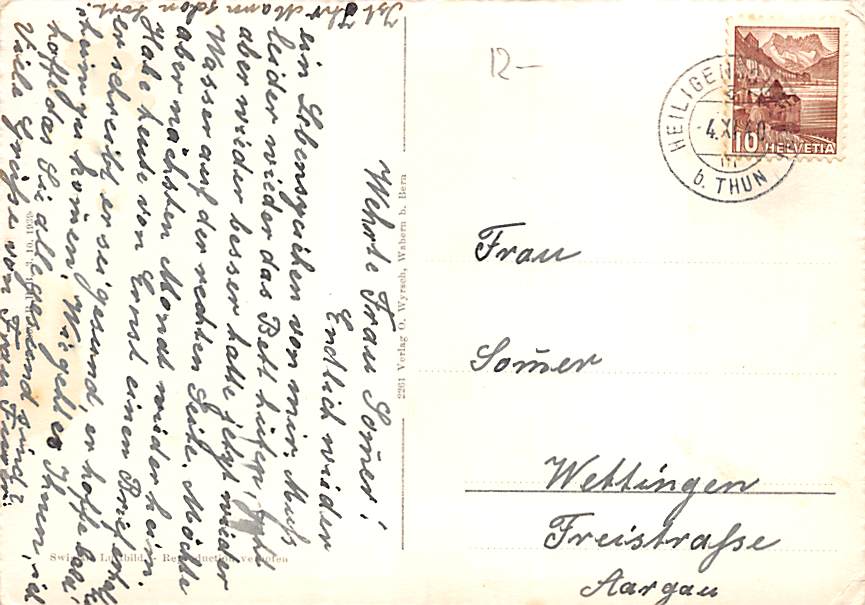 Ist Ihr Mann schon fort.
Wehrte Frau Som̄er!
Endlich wieder
ein Lebenszeichen von mir. Muss
leider wieder das Bett hüten, geht
aber wieder besser hatte jetzt wieder
Wasser auf der rechten Seite. Möchte
aber nächsten Monat wieder heim
Habe heute von Ernst einen Brief erhalt
er schreibt er sei gesund, er hoffe bald
heim zu kom̄en. Wie geht es Ihnen, ich
hoffe das Sie alle gesund sind?
Viele Grüsse von Frau Furer.
2261 Verlag O. Wyrsch, Wabern b. Bern
3. 10. 1939
Swiss Luftbild - Reproduction verboten
12-
HEILIGEN
b. THUN
-4.XI.40
10 HELVETIA
Frau
Som̄er
Wettingen
Freistrasse
Aargau